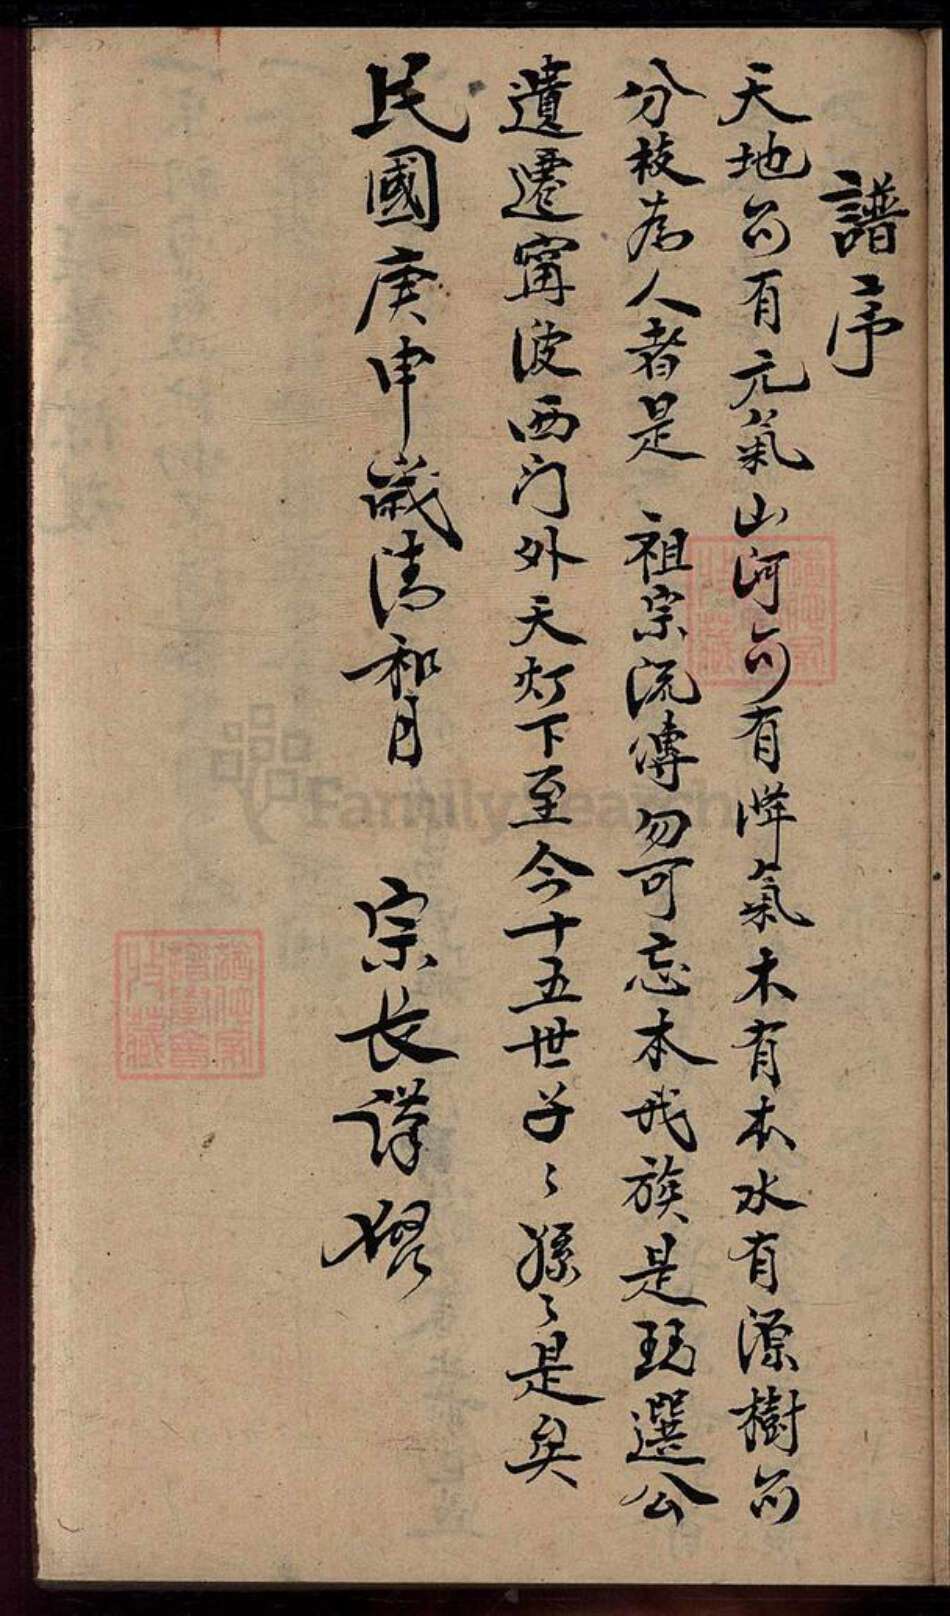 譜序
天地所有元氣山河所有降氣木有本水有源樹所
分枝為人者是 祖宗流傳勿可忘本我族是珗選公
遺遷甯波西门外天灯下至今十五世子〻孫〻是矣
民國庚申歲清和月 宗長謹
FamilySearch